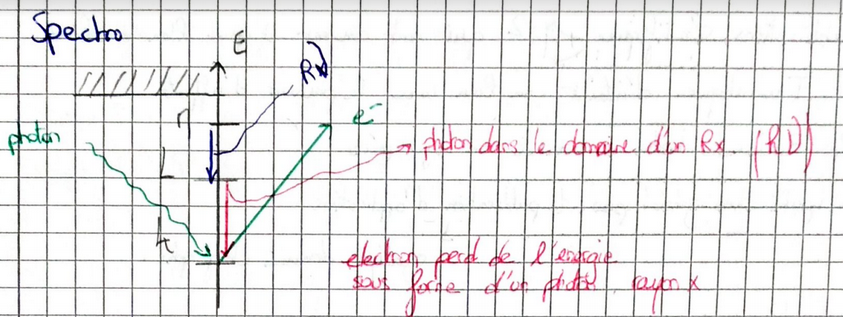 Spectro
E
RX
M
e-
photon
photon dans le domaine d'un Rx. (RX)
L
K
electron perd de l'énergie
sous forme d'un photon rayon x